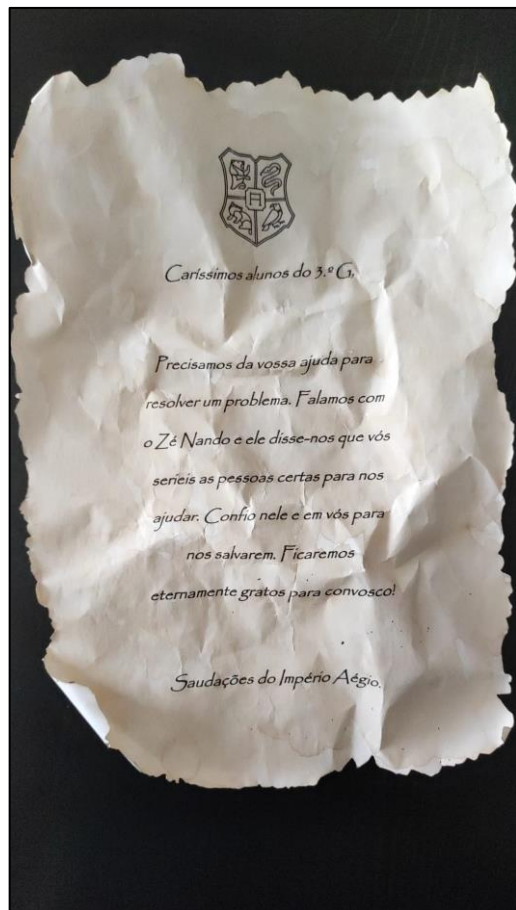 Caríssimos alunos do 3.º G,
Precisamos da vossa ajuda para
resolver um problema. Falamos com
o Zé Nando e ele disse-nos que vós
seríeis as pessoas certas para nos
ajudar. Confio nele e em vós para
nos salvarem. Ficaremos
eternamente gratos para convosco!
Saudações do Império Aégio.